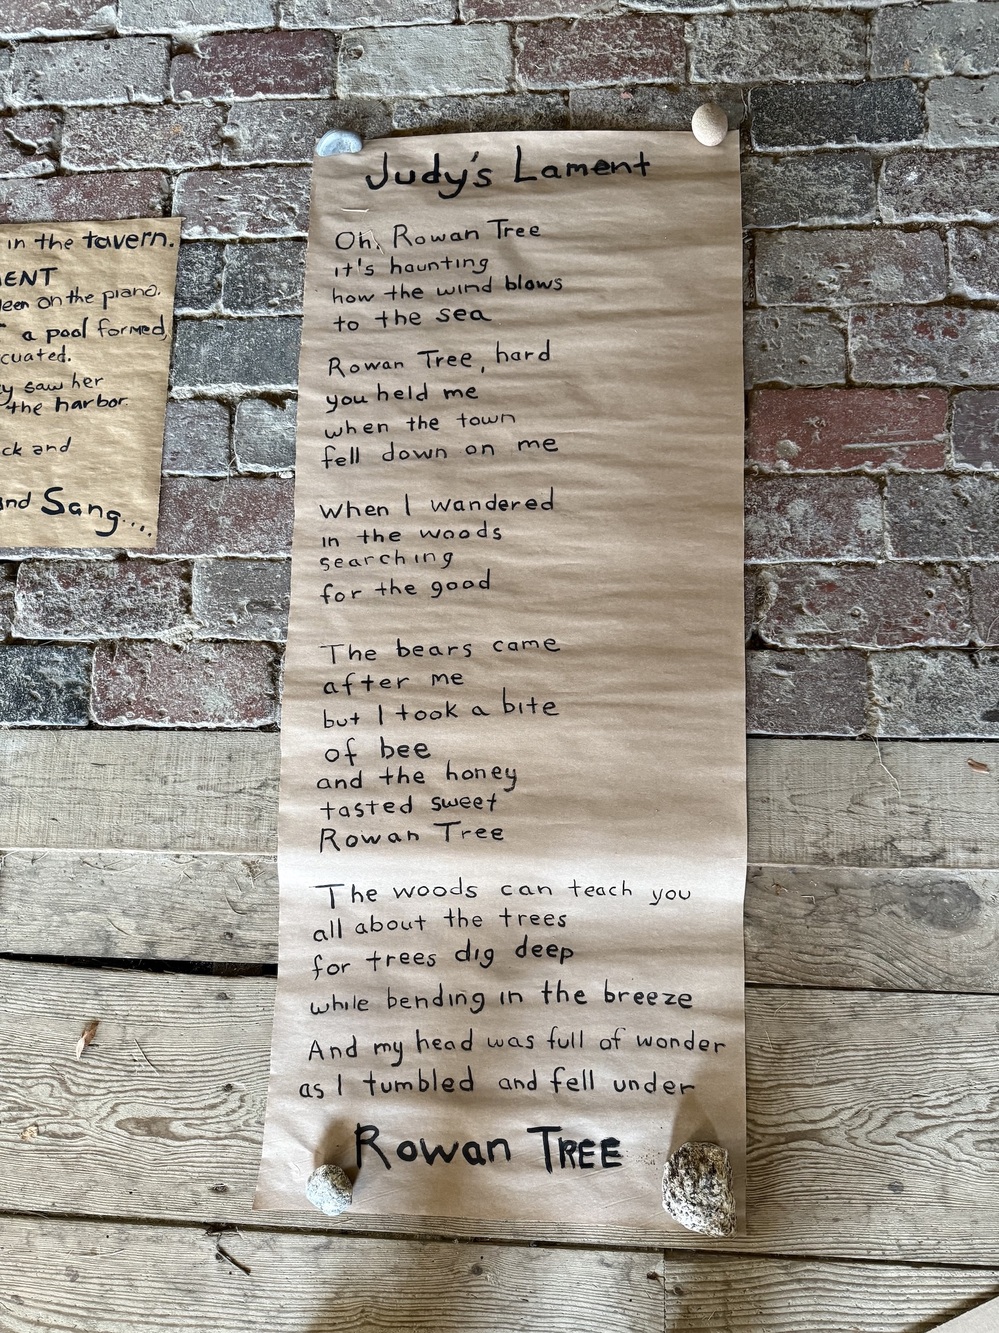 in the tavern.
on the piano.
a pool formed,
saw her
the harbor.
and
Sang....
Judy's Lament
Oh, Rowan Tree
it's haunting
how the wind blows
to the sea
Rowan Tree, hard
you held me
when the town
fell down on me
When I wandered
in the woods
searching
for the good
The bears came
after me
but I took a bite
of bee
and the honey
tasted sweet
Rowan Tree
The woods can teach you
all about the trees
for trees dig deep
while bending in the breeze
And my head was full of wonder
as I tumbled and fell under
Rowan TREE